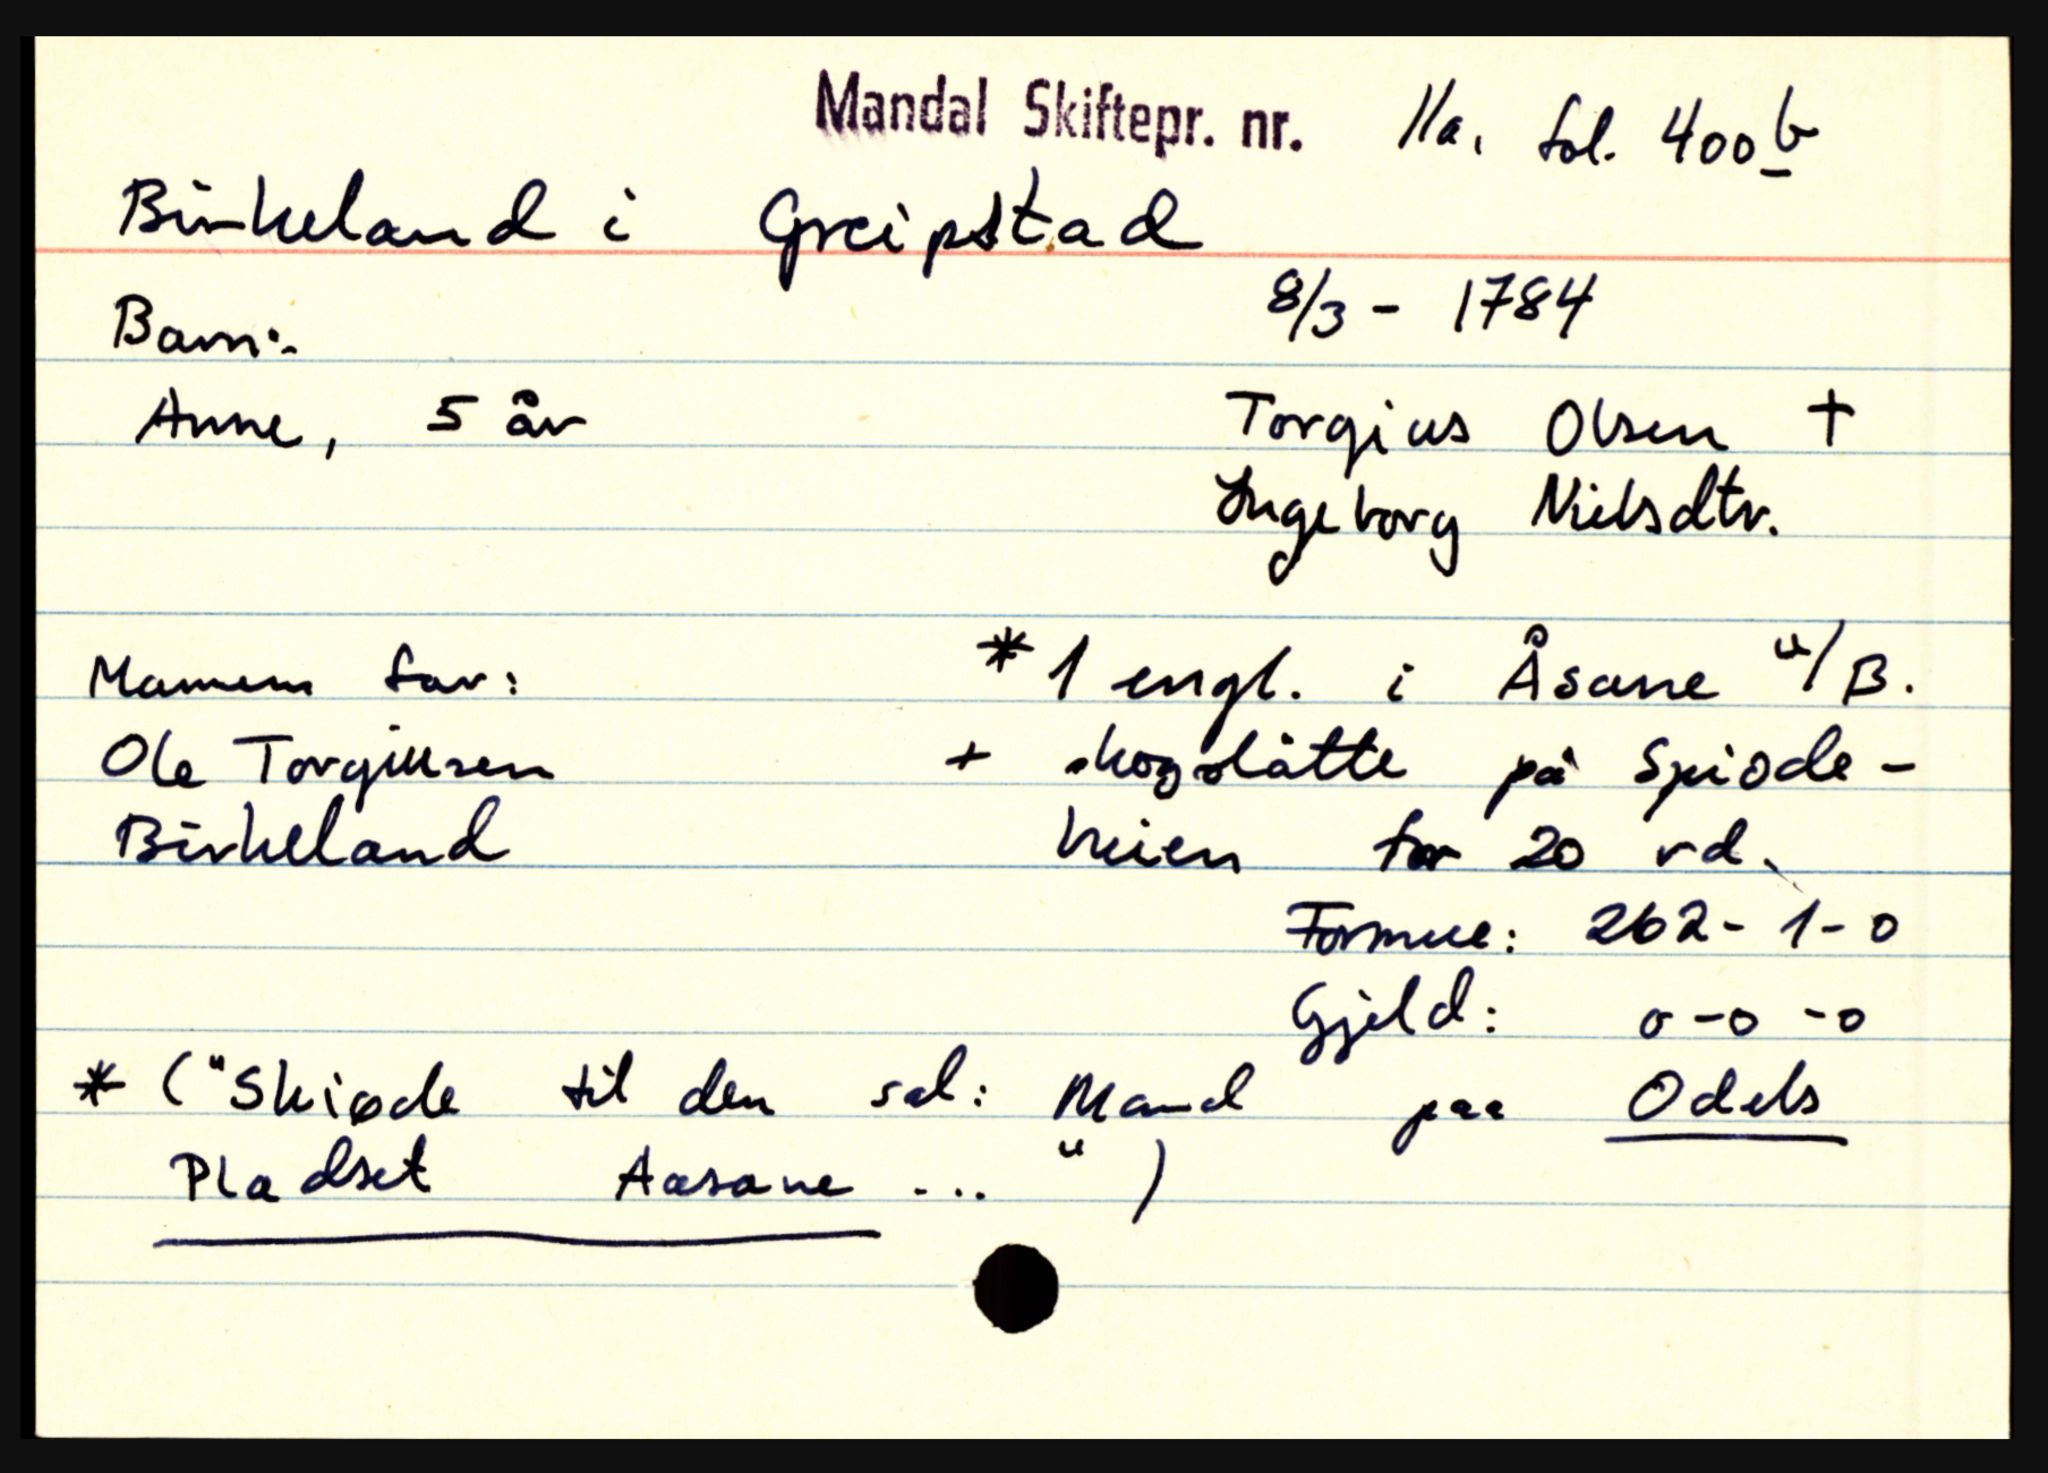 Mandal Skiftepr. nr. 11a, fol. 400b
Birkeland i Greipstad
8/3 - 1784
Barn:
Anne, 5 år
Torgius Olsen †
Ingeborg Nielsdtr.
Mannens far:
Ole Torgiusen
Birkeland
* 1 engl. i Åsane u/B.
+ skogslåtte på Spiode-
heien for 20 rd.
Formue: 262-1-0
Gjeld: 0-0-0
* ("Skiøde til den sal: Mand paa Odels
Pladset Aasane ... ")